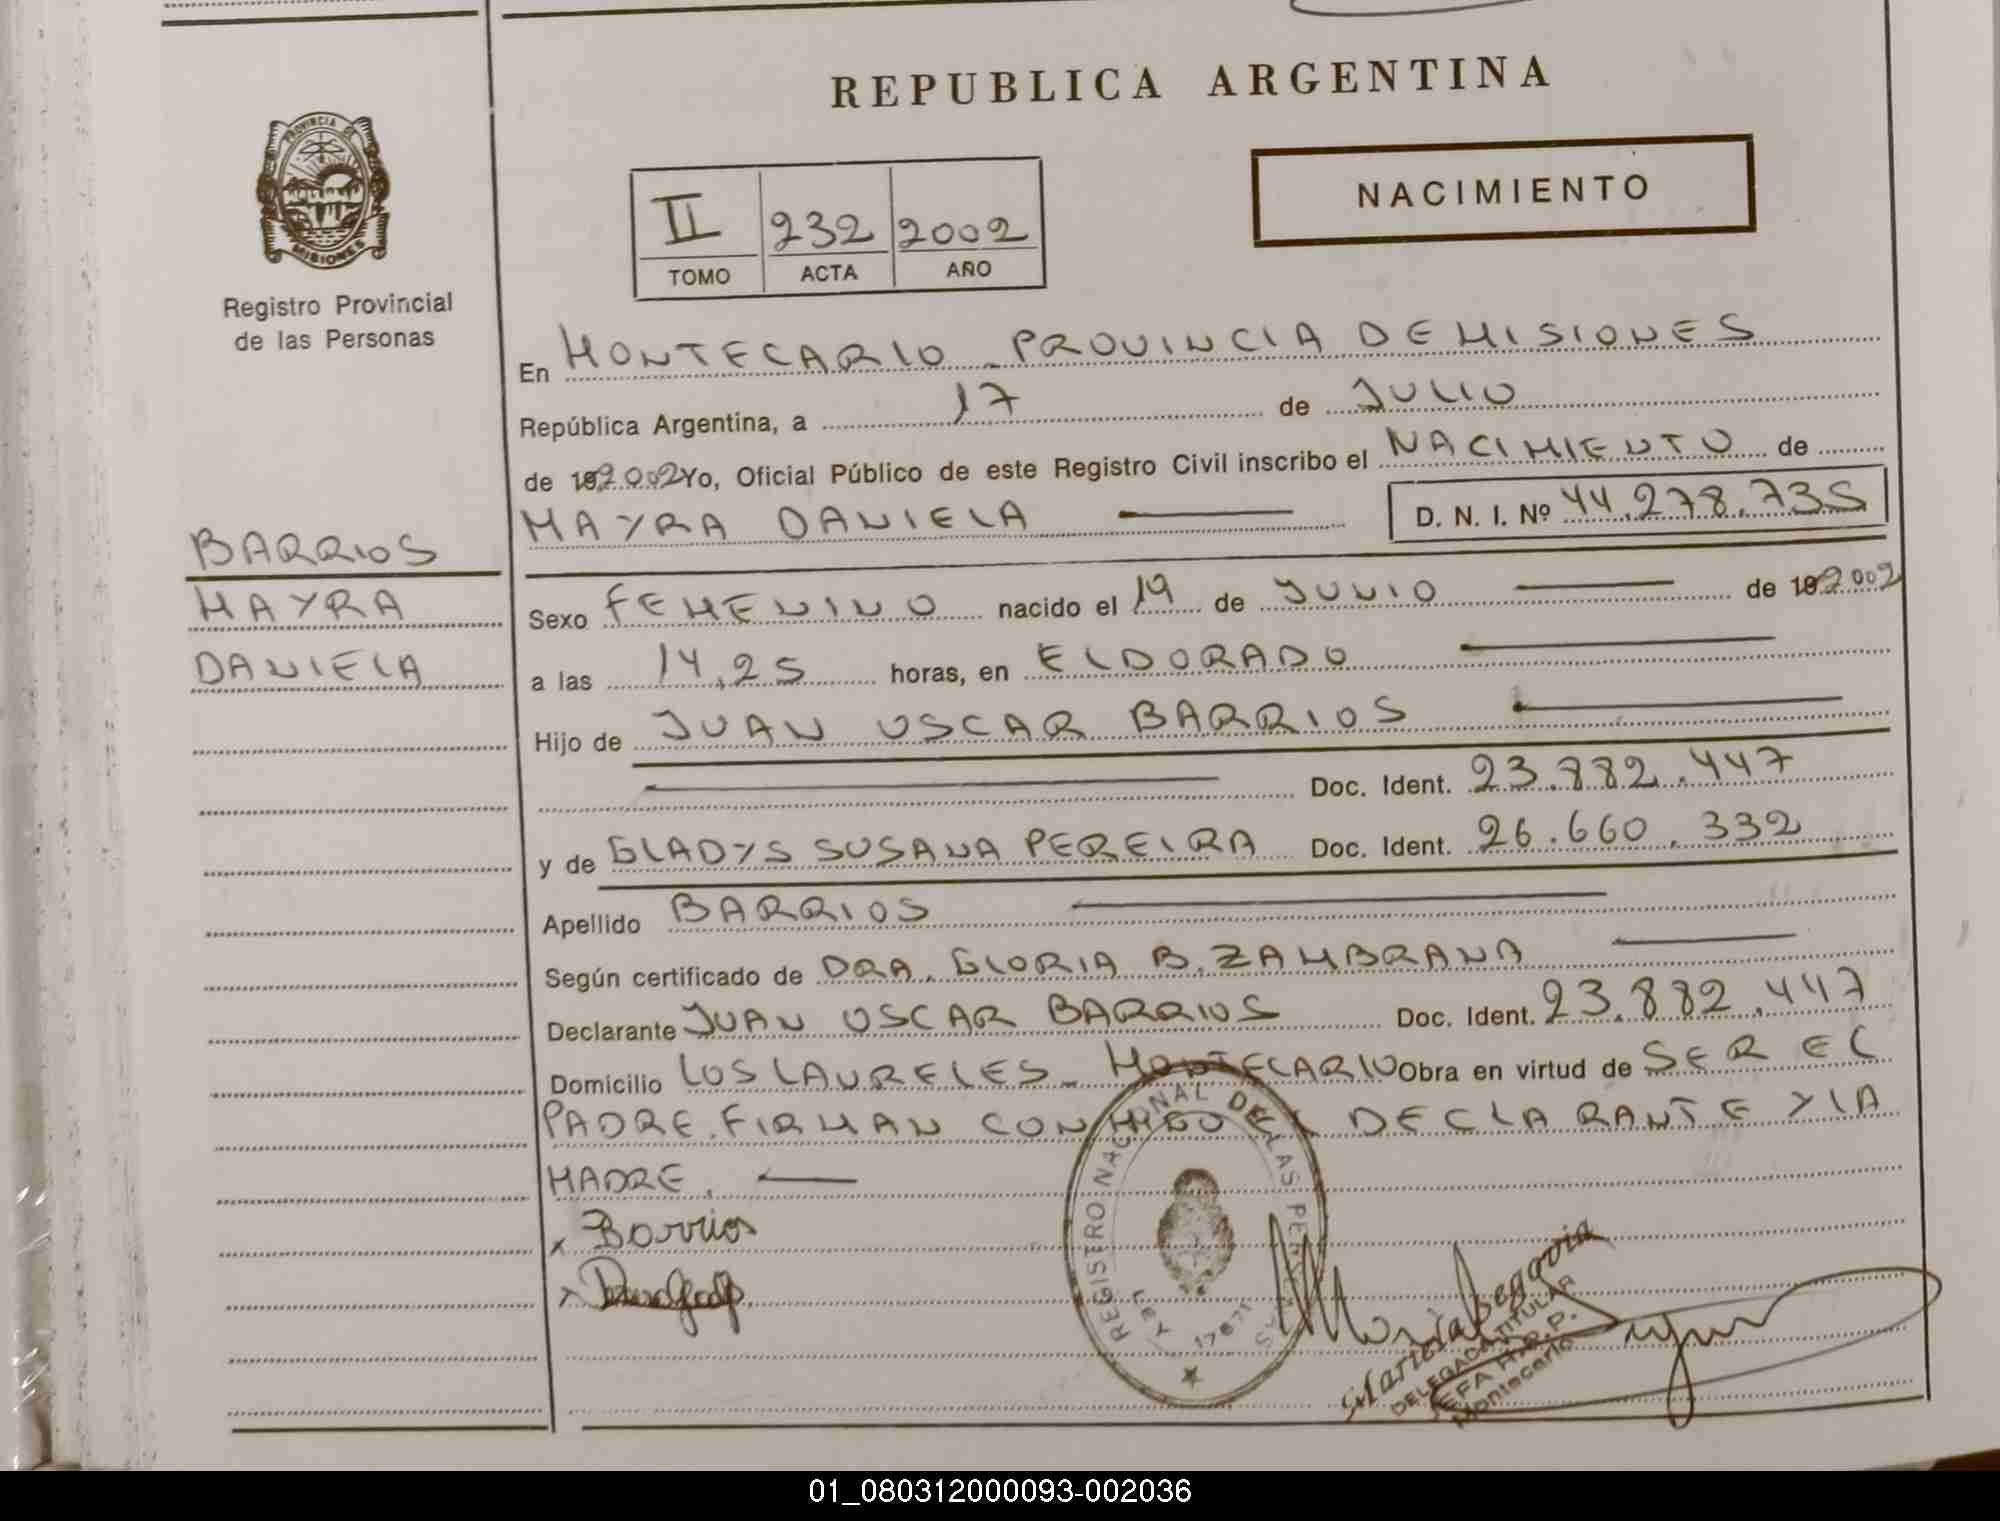 REPUBLICA ARGENTINA
PROVINCIA DE
MISIONES
Registro Provincial
de las Personas
NACIMIENTO
II 232 2002
TOMO ACTA AÑO
En MONTECARLO - PROVINCIA DE MISIONES
República Argentina, a 17 de JULIO
de 19 2002 Yo, Oficial Público de este Registro Civil inscribo el NACIMIENTO de
MAYRA DANIELA D. N. I. Nº 44.278.735
BARRIOS
MAYRA
DANIELA
Sexo FEMENINO nacido el 19 de JUNIO de 19 2002
a las 14,25 horas, en ELDORADO
Hijo de JUAN OSCAR BARRIOS
Doc. Ident. 23.882.447
y de GLADYS SUSANA PEREIRA Doc. Ident. 26.660.332
Apellido BARRIOS
Según certificado de DRA. GLORIA B. ZAMBRANA
Declarante JUAN OSCAR BARRIOS Doc. Ident. 23.882.447
Domicilio LOS LAURELES - MONTECARLO Obra en virtud de SER EL
PADRE. FIRMAN CONMIGO EL DECLARANTE Y LA
MADRE.
x Barrios
x
REGISTRO NACIONAL DE LAS PERSONAS
LEY 17671
Maria Segovia
DELEGADA TITULAR
JEFA R.P.P.
Montecarlo
01_080312000093-002036